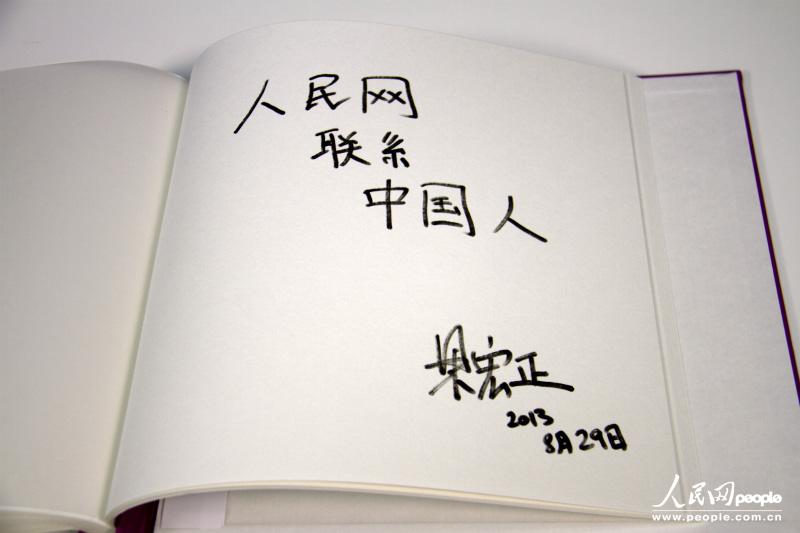 人民网
联系
中国人
梁宏正
2013
8月29日
人民网people
www.people.com.cn